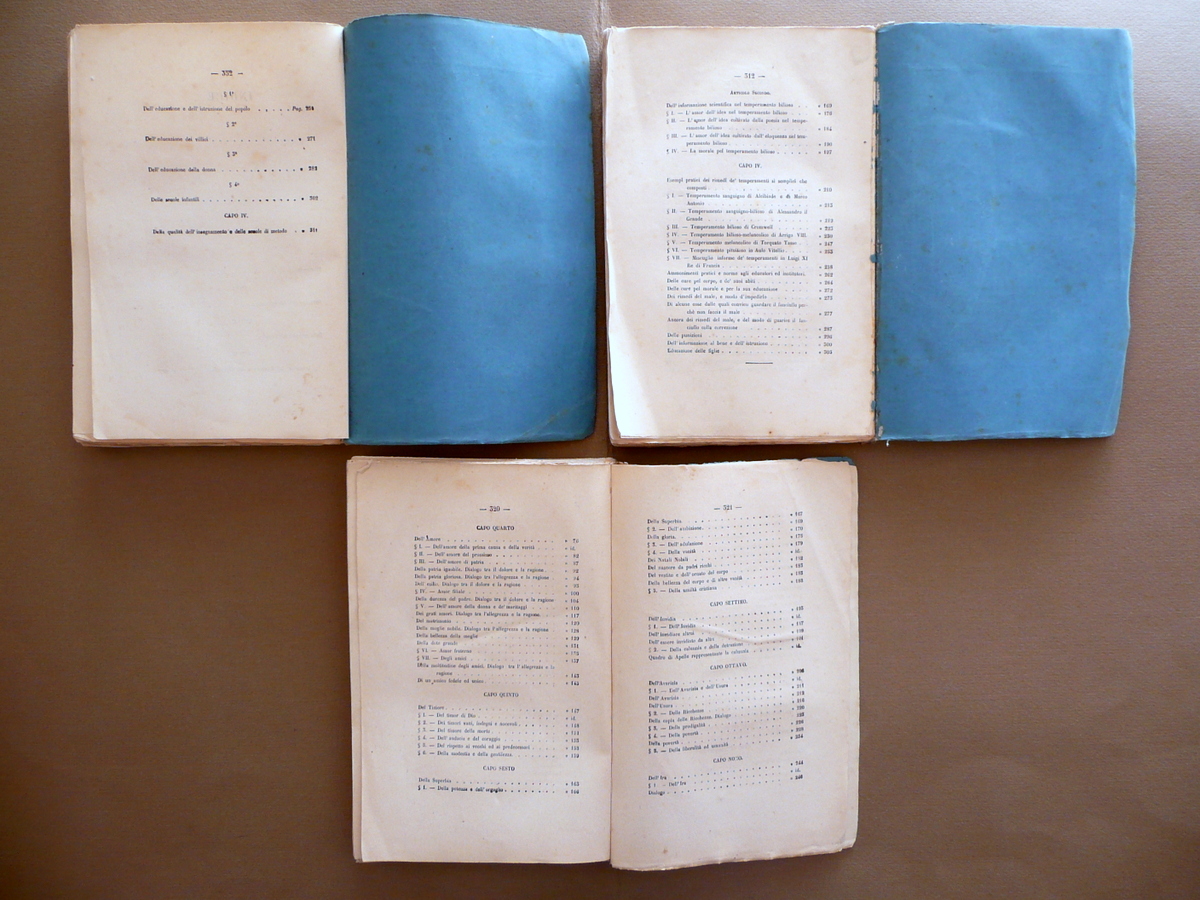 — 332 —
§ 1º
Dell'educazione e dell'istruzione del popolo . . . . . . Pag.
§ 2º
Dell'educazione dei villici . . . . . . » 271
§ 3º
Dell'educazione della donna . . . . . . »
§ 4º
Delle scuole infantili . . . . . . » 302
CAPO IV.
Della qualità dell'insegnamento e delle scuole di metodo . . »
— 312 —
Articolo Secondo.
Dell'informazione scientifica nel temperamento bilioso . . » 169
§ I. — L'amor dell'idea nel temperamento bilioso . . » 178
§ II. — L'amor dell'idea coltivato dalla poesia nel tempe-
ramento bilioso . . . . . . » 184
§ III. — L'amor dell'idea coltivato dall'eloquenza nel tem-
peramento bilioso . . . . . . »
§ IV. — La morale pel temperamento bilioso . . . . » 197
CAPO IV.
Esempi pratici dei risulti de' temperamenti sì semplici che
composti . . . . . . » 210
§ I. — Temperamento sanguigno di Alcibiade e di Marco
Antonio . . . . . . » 213
§ II. — Temperamento sanguigno-bilioso di Alessandro il
Grande . . . . . . » 219
§ III. — Temperamento bilioso di Cromwell . . . . »
§ IV. — Temperamento bilioso-melanconico di Arrigo VIII. » 230
§ V. — Temperamento melanconico di Torquato Tasso . . » 247
§ VI. — Temperamento pituitoso in Aulo Vitellio . . »
§ VII. — Miscuglio informe de' temperamenti in Luigi XI
Re di Francia . . . . . . » 258
Ammonimenti pratici e norme agli educatori ed institutori. » 262
Delle cure pel corpo, e de' suoi abiti . . . . » 264
Della cure pel morale e per la sua educazione . . . . » 272
Dei rimedi del male, e modo d'impedirlo . . . . » 275
Di alcune cose dalle quali conviene guardare il fanciullo per-
chè non faccia il male . . . . » 277
Ancora dei rimedi del male, e del modo di guarire il fan-
ciullo colla correzione . . . . » 287
Delle punizioni . . . . . . » 296
Dell'informazione al bene e dell'istruzione . . . . » 300
Educazione delle figlie . . . . . . » 304
— 320 —
CAPO QUARTO
Dell'Amore . . . . . . » 79
§ I. — Dell'amore della prima causa e della verità . . » id.
§ II. — Dell'amore del prossimo . . . . »
§ III. — Dell'amore di patria . . . . » 87
Della patria ignobile. Dialogo tra il dolore e la ragione . . » 92
Della patria gloriosa. Dialogo tra l'allegrezza e la ragione » 94
Dialogo tra il dolore e la ragione . . »
§ IV. — Amor filiale . . . . » 100
Della durezza del padre. Dialogo tra il dolore e la ragione » 104
§ V. — Dell'amore della donna e de' maritaggi . . » 110
Dei grati amori. Dialogo tra l'allegrezza e la ragione. . » 117
Del matrimonio . . . . » 120
Della moglie nobile. Dialogo tra l'allegrezza e la ragione » 128
Della bellezza della moglie . . . . »
Della dote grande . . . . » 131
§ VI. — Amor fraterno . . . . »
§ VII. — Degli amici . . . . » 137
Della moltitudine degli amici. Dialogo tra l'allegrezza e la
ragione . . . . » 143
Di un amico fedele ed unico . . . . » 145
CAPO QUINTO
Del Timore . . . . » 147
§ 1. — Del timor di Dio . . . . » id.
§ 2. — Dei timori vani, indegni e amorosi . . »
§ 3. — Del timore della morte . . . . »
§ 4. — Dell'audacia e del coraggio . . »
§ 5. — Del rispetto ai vecchi ed ai professori . . »
§ 6. — Della modestia e della gentilezza . . »
CAPO SESTO
Della Superbia . . . . »
§ 1. — Della potenza e dell'orgoglio . . »
— 321 —
Della Superbia . . . . » 167
§ 2. — Dell'ambizione . . . . » 169
Della gloria. . . . . » 170
§ 3. — Dell'adulazione . . . . » 175
§ 4. — Della vanità . . . . » 179
Dei Natali Nobili . . . . » id.
Del nascere da padri oscuri . . . . »
Del vestire e dell'ornato del corpo . . »
Della bellezza del corpo e di altre vanità . . »
§ 5. — Della umiltà cristiana . . . . »
CAPO SETTIMO.
Dell'Invidia . . . . »
§ 1. — Dell'Invidia . . . . » id.
Dell'invidiare altrui . . . . »
Dell'essere invidiato da altri . . . . »
§ 2. — Della calunnia e della detrazione . . »
Quadro di Apelle rappresentante la calunnia . . » id.
CAPO OTTAVO.
Dell'Avarizia . . . . »
§ 1. — Dell'Avarizia e dell'Usura . . » id.
Dell'Avarizia . . . . » 211
Dell'Usura . . . . »
§ 2. — Delle Ricchezze . . . . »
Della copia delle Ricchezze. Dialogo . . »
§ 3. — Della prodigalità . . . . »
§ 4. — Della povertà . . . . »
Della povertà . . . . »
§ 5. — Della liberalità ed umanità . . »
CAPO NONO.
Dell'Ira . . . . »
§ 1 — Dell'Ira . . . . » id.
Dialogo . . . . »